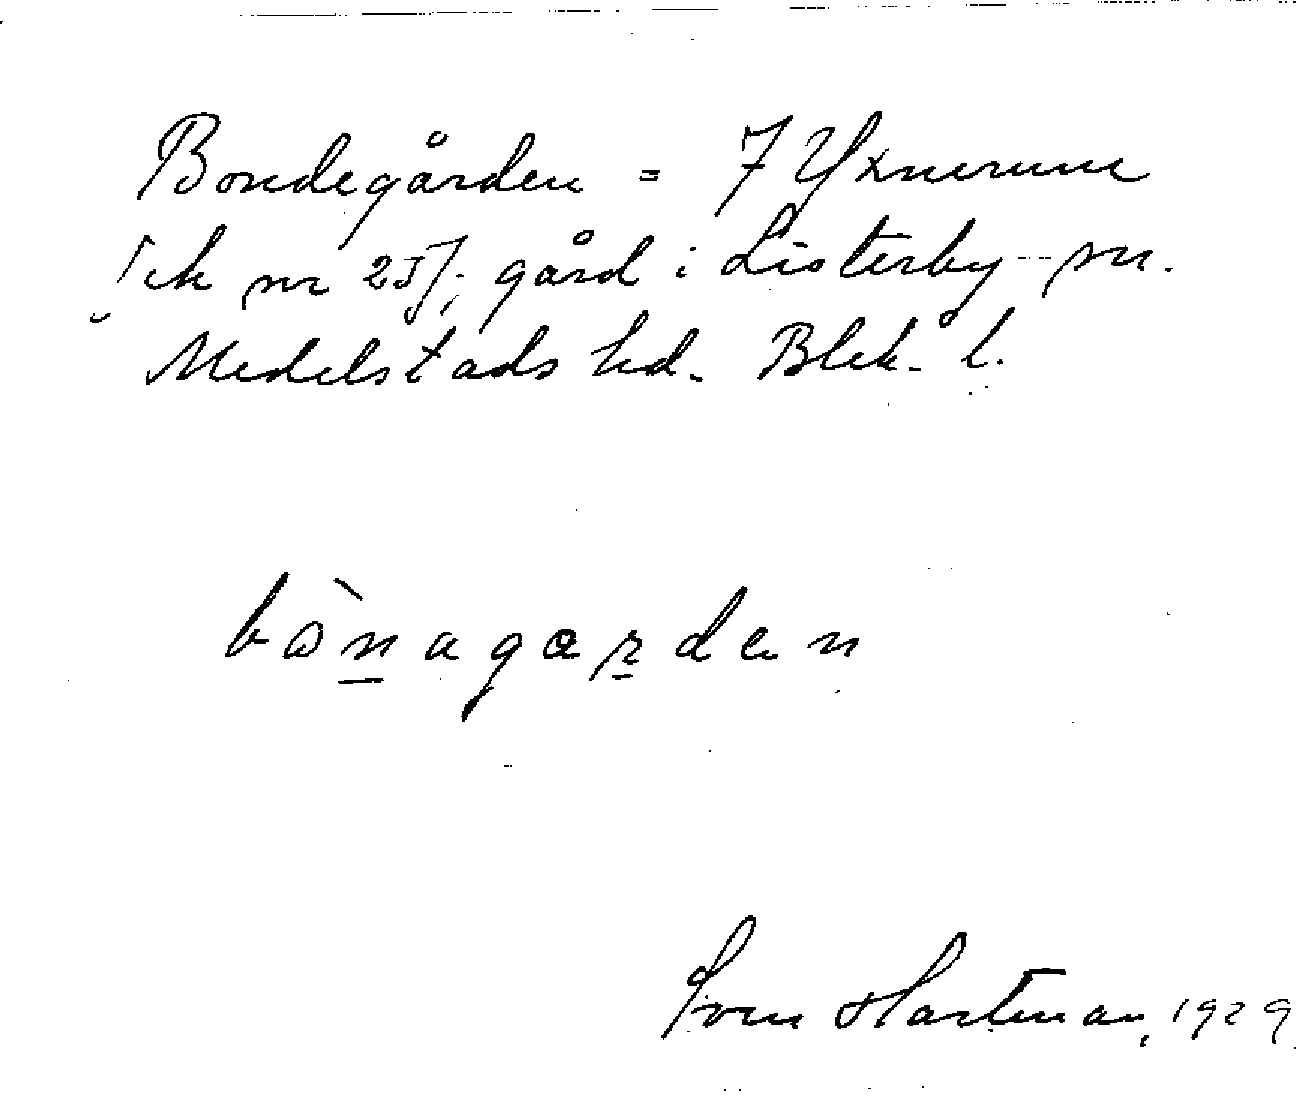 Bondegården = 7 Yxnerum
[ek nr 25]; gård i Listerby sn.
Medelstads hd. Blek. l.
bònagarden
Sven Hartman, 1929